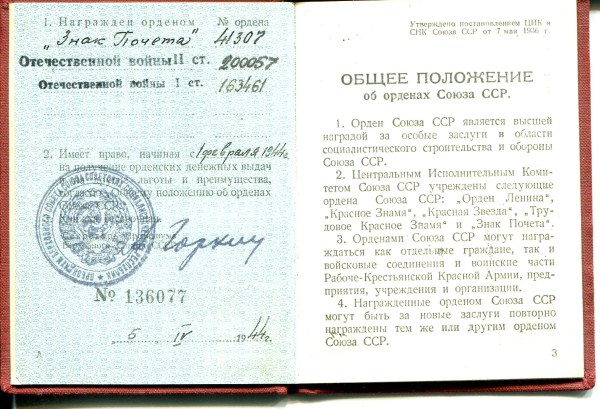 1. Награжден орденом № ордена
„Знак Почета" 41307
Отечественной войны II ст. 200057
Отечественной войны I ст. 163461
2. Имеет право, начиная с 1 февраля 1944 г.
на получение орденских денежных выдач
льготы и преимущества,
согласно Общему положению об орденах
Союза ССР.
Горкин
№ 136077
5 IV 1944 г.
Утверждено постановлением ЦИК и
СНК Союза ССР от 7 мая 1936 г.
ОБЩЕЕ ПОЛОЖЕНИЕ
об орденах Союза ССР.
1. Орден Союза ССР является высшей
наградой за особые заслуги в области
социалистического строительства и обороны
Союза ССР.
2. Центральным Исполнительным Коми-
тетом Союза ССР учреждены следующие
ордена Союза ССР: „Орден Ленина",
„Красное Знамя", „Красная Звезда", „Тру-
довое Красное Знамя" и „Знак Почета".
3. Орденами Союза ССР могут награ-
ждаться как отдельные граждане, так
и войсковые соединения и воинские части
Рабоче-Крестьянской Красной Армии, пред-
приятия, учреждения и организации.
4. Награжденные орденом Союза ССР
могут быть за новые заслуги повторно
награждены тем же или другим орденом
Союза ССР.
3